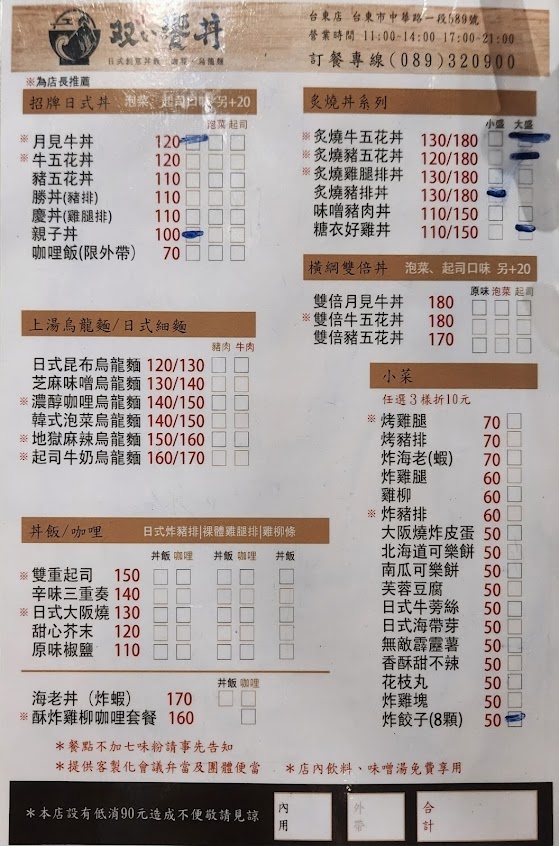 双い饗丼
日式創意丼飯、咖哩、烏龍麵
台東店 台東市中華路一段589號
營業時間 11:00-14:00 17:00-21:00
訂餐專線(089)320900
※為店長推薦
招牌日式丼 泡菜、起司口味 另+20
泡菜 起司
※月見牛丼 120
※牛五花丼 120
豬五花丼 110
勝丼(豬排) 110
慶丼(雞腿排) 110
親子丼 100
咖哩飯(限外帶) 70
炙燒丼系列
小盛 大盛
※炙燒牛五花丼 130/180
※炙燒豬五花丼 120/180
※炙燒雞腿排丼 130/180
炙燒豬排丼 130/180
味噌豬肉丼 110/150
糖衣好雞丼 110/150
橫綱雙倍丼 泡菜、起司口味 另+20
原味 泡菜 起司
雙倍月見牛丼 180
※雙倍牛五花丼 180
雙倍豬五花丼 170
上湯烏龍麵/日式細麵
豬肉 牛肉
日式昆布烏龍麵 120/130
芝麻味噌烏龍麵 130/140
※濃醇咖哩烏龍麵 140/150
韓式泡菜烏龍麵 140/150
※地獄麻辣烏龍麵 150/160
※起司牛奶烏龍麵 160/170
小菜
任選3樣折10元
※烤雞腿 70
烤豬排 70
炸海老(蝦) 70
炸雞腿 60
雞柳 60
※炸豬排 60
大阪燒炸皮蛋 50
北海道可樂餅 50
南瓜可樂餅 50
芙蓉豆腐 50
日式牛蒡絲 50
日式海帶芽 50
無敵霹靂薯 50
香酥甜不辣 50
花枝丸 50
炸雞塊 50
炸餃子(8顆) 50
丼飯/咖哩 日式炸豬排|裸體雞腿排|雞柳條
丼飯 咖哩 丼飯 咖哩 丼飯
※雙重起司 150
辛味三重奏 140
※日式大阪燒 130
甜心芥末 120
原味椒鹽 110
丼飯 咖哩
海老丼(炸蝦) 170
※酥炸雞柳咖哩套餐 160
＊餐點不加七味粉請事先告知
＊提供客製化會議弁當及團體便當 ＊店內飲料、味噌湯免費享用
＊本店設有低消90元造成不便敬請見諒
內用
外帶
合計